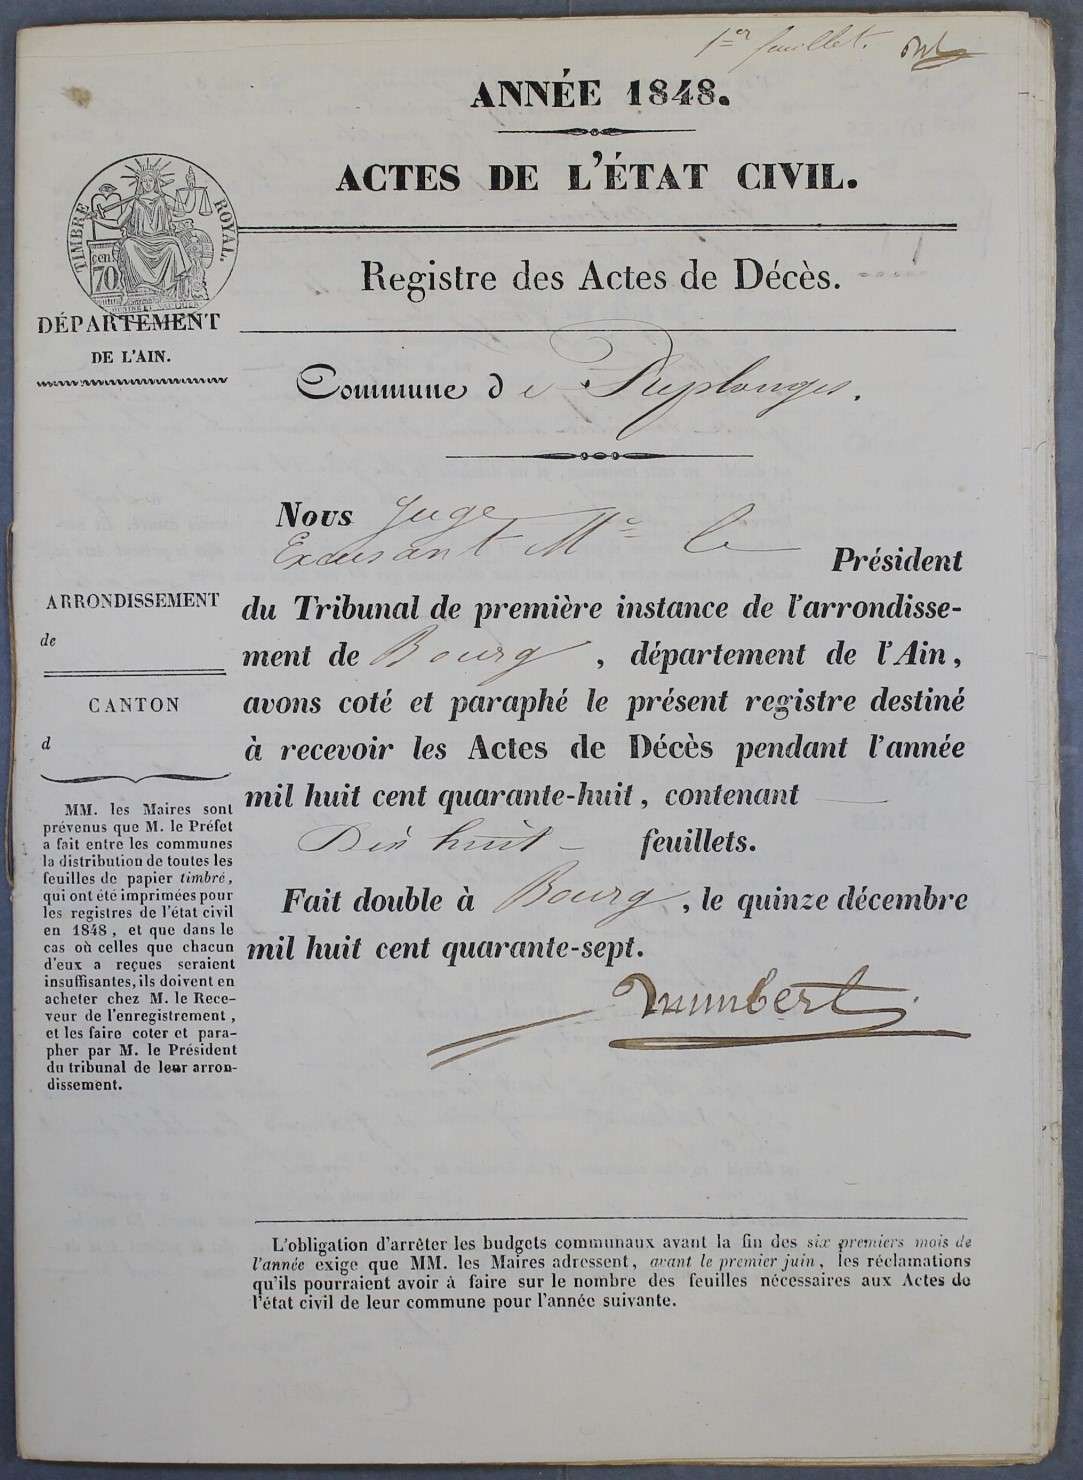 1er feuillet.
ANNÉE 1848.
ACTES DE L'ÉTAT CIVIL.
TIMBRE ROYAL.
cen
70
Registre des Actes de Décès.
DÉPARTEMENT
DE L'AIN.
Commune de Replonges.
Nous Juge
Excusant Mr le Président
du Tribunal de première instance de l'arrondisse-
ment de Bourg, département de l'Ain,
avons coté et paraphé le présent registre destiné
à recevoir les Actes de Décès pendant l'année
mil huit cent quarante-huit, contenant
Dix huit feuillets.
Fait double à Bourg, le quinze décembre
mil huit cent quarante-sept.
ARRONDISSEMENT
de
CANTON
d
MM. les Maires sont
prévenus que M. le Préfet
a fait entre les communes
la distribution de toutes les
feuilles de papier timbré,
qui ont été imprimées pour
les registres de l'état civil
en 1848, et que dans le
cas où celles que chacun
d'eux a reçues seraient
insuffisantes, ils doivent en
acheter chez M. le Rece-
veur de l'enregistrement,
et les faire coter et para-
pher par M. le Président
du tribunal de leur arron-
dissement.
L'obligation d'arrêter les budgets communaux avant la fin des six premiers mois de
l'année exige que MM. les Maires adressent, avant le premier juin, les réclamations
qu'ils pourraient avoir à faire sur le nombre des feuilles nécessaires aux Actes de
l'état civil de leur commune pour l'année suivante.